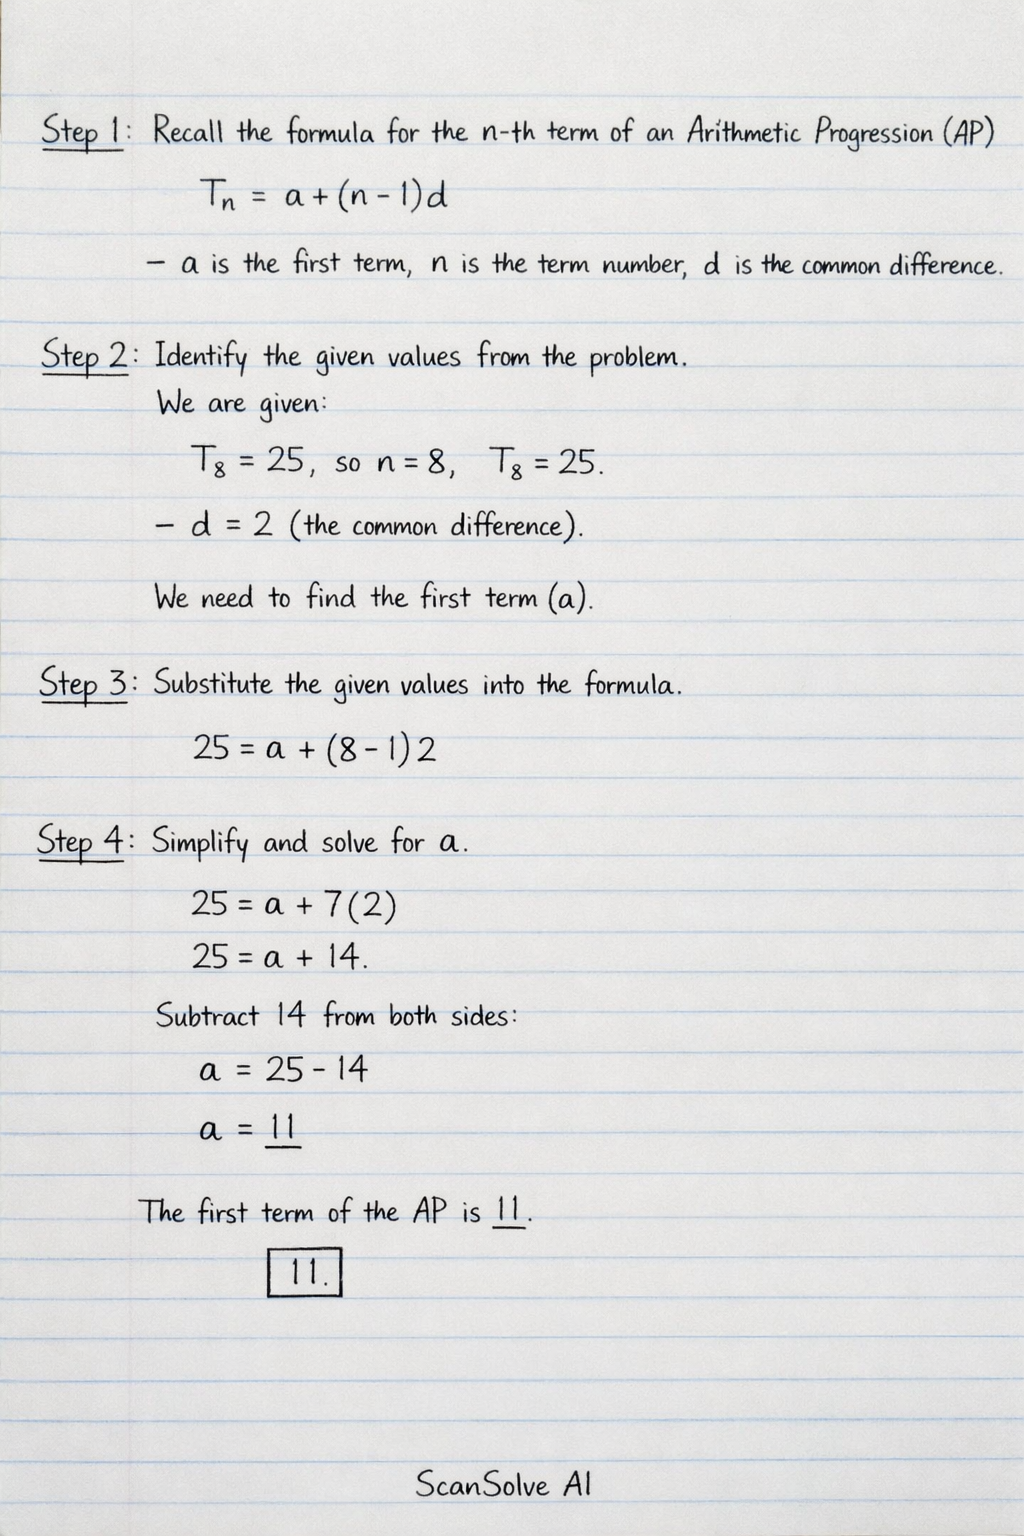 Step 1: Recall the formula for the n-th term of an Arithmetic Progression (AP)
Tn = a + (n - 1)d
– a is the first term, n is the term number, d is the common difference.
Step 2: Identify the given values from the problem.
We are given:
T8 = 25, so n = 8, T8 = 25.
– d = 2 (the common difference).
We need to find the first term (a).
Step 3: Substitute the given values into the formula.
25 = a + (8 - 1) 2
Step 4: Simplify and solve for a.
25 = a + 7(2)
25 = a + 14.
Subtract 14 from both sides:
a = 25 - 14
a = 11
The first term of the AP is 11.
11.
ScanSolve AI